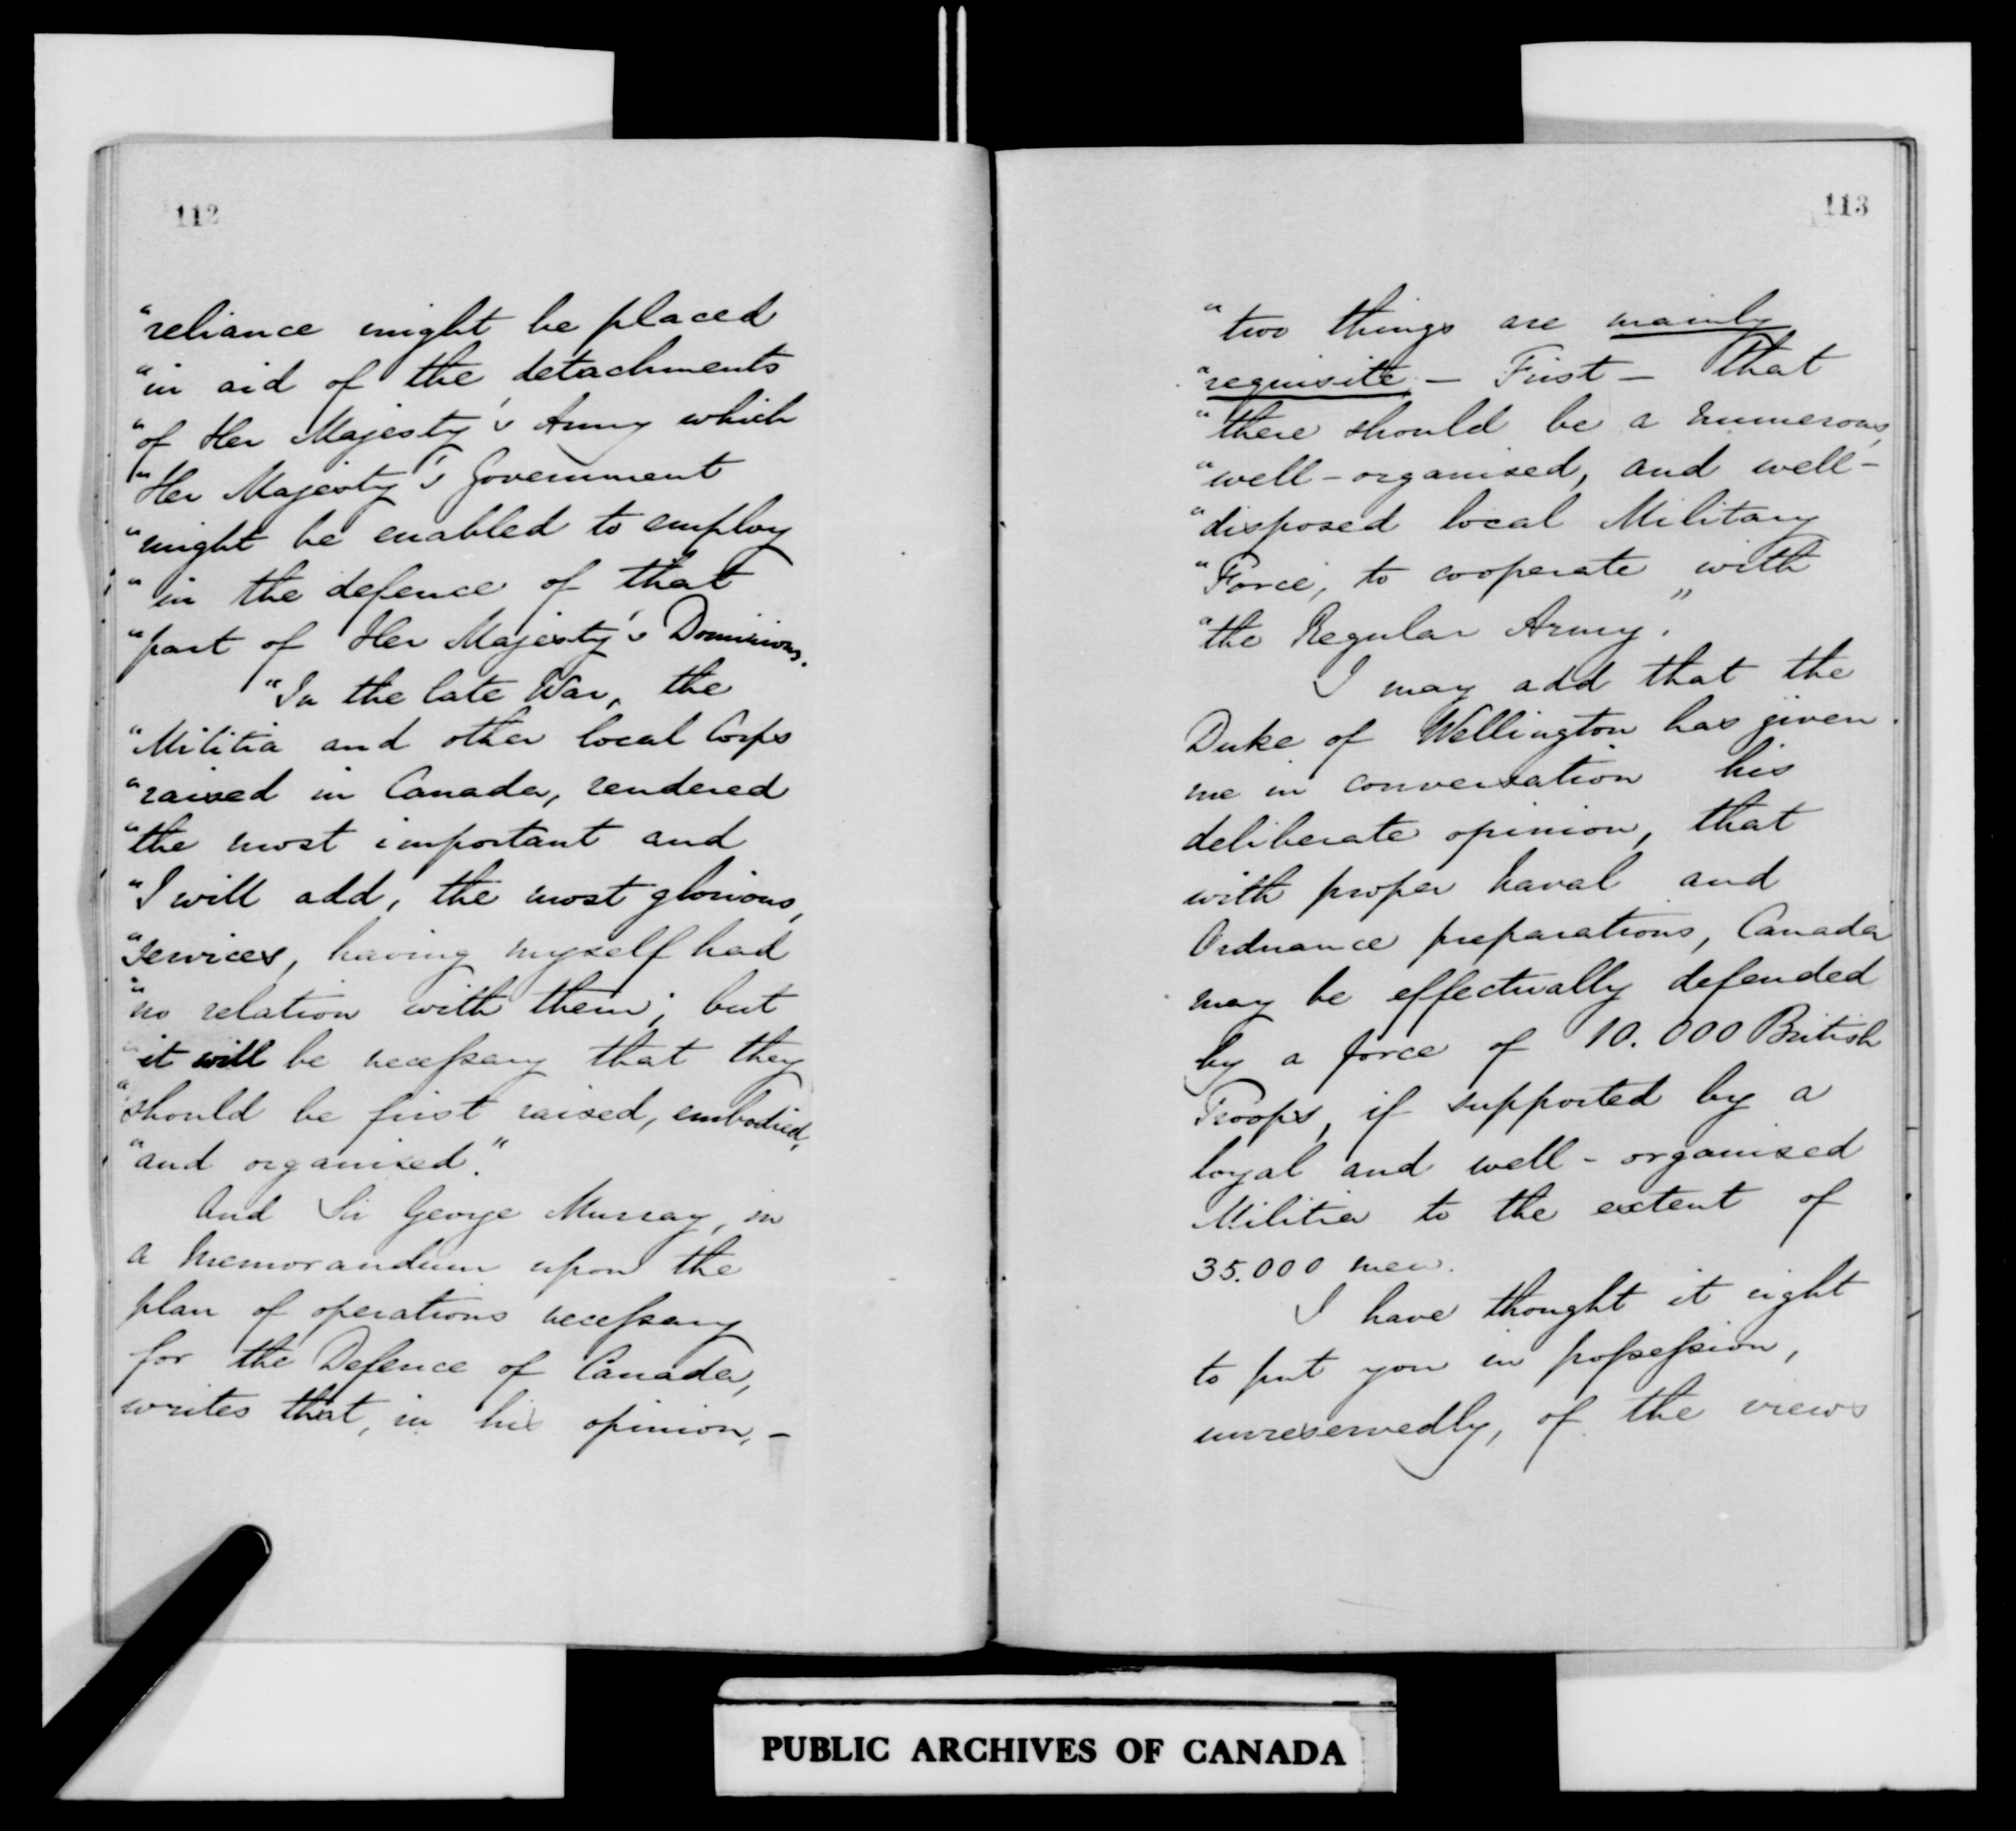 112
"reliance might be placed
"in aid of the detachments
"of Her Majesty's Army which
"Her Majesty's Government
"might be enabled to employ
"in the defence of that
"part of Her Majesty's Dominions.
"In the late War, the
"Militia and other local Corps
"raised in Canada, rendered
"the most important and
"I will add, the most glorious,
"services, having myself had
"no relation with them; but
"it will be necessary that they
"should be first raised, embodied,
"and organised."
And Sir George Murray, in
a Memorandum upon the
plan of operations necessary
for the Defence of Canada,
writes that, in his opinion, -
113
"two things are mainly
"requisite - First - That
"there should be a numerous,
"well-organised, and well-
"disposed local Military
"Force, to cooperate with
"the Regular Army."
I may add that the
Duke of Wellington has given
me in conversation his
deliberate opinion, that
with proper naval and
Ordnance preparations, Canada
may be effectually defended
by a force of 10.000 British
Troops, if supported by a
loyal and well-organised
Militia to the extent of
35.000 men.
I have thought it right
to put you in possession,
unreservedly, of the views
PUBLIC ARCHIVES OF CANADA